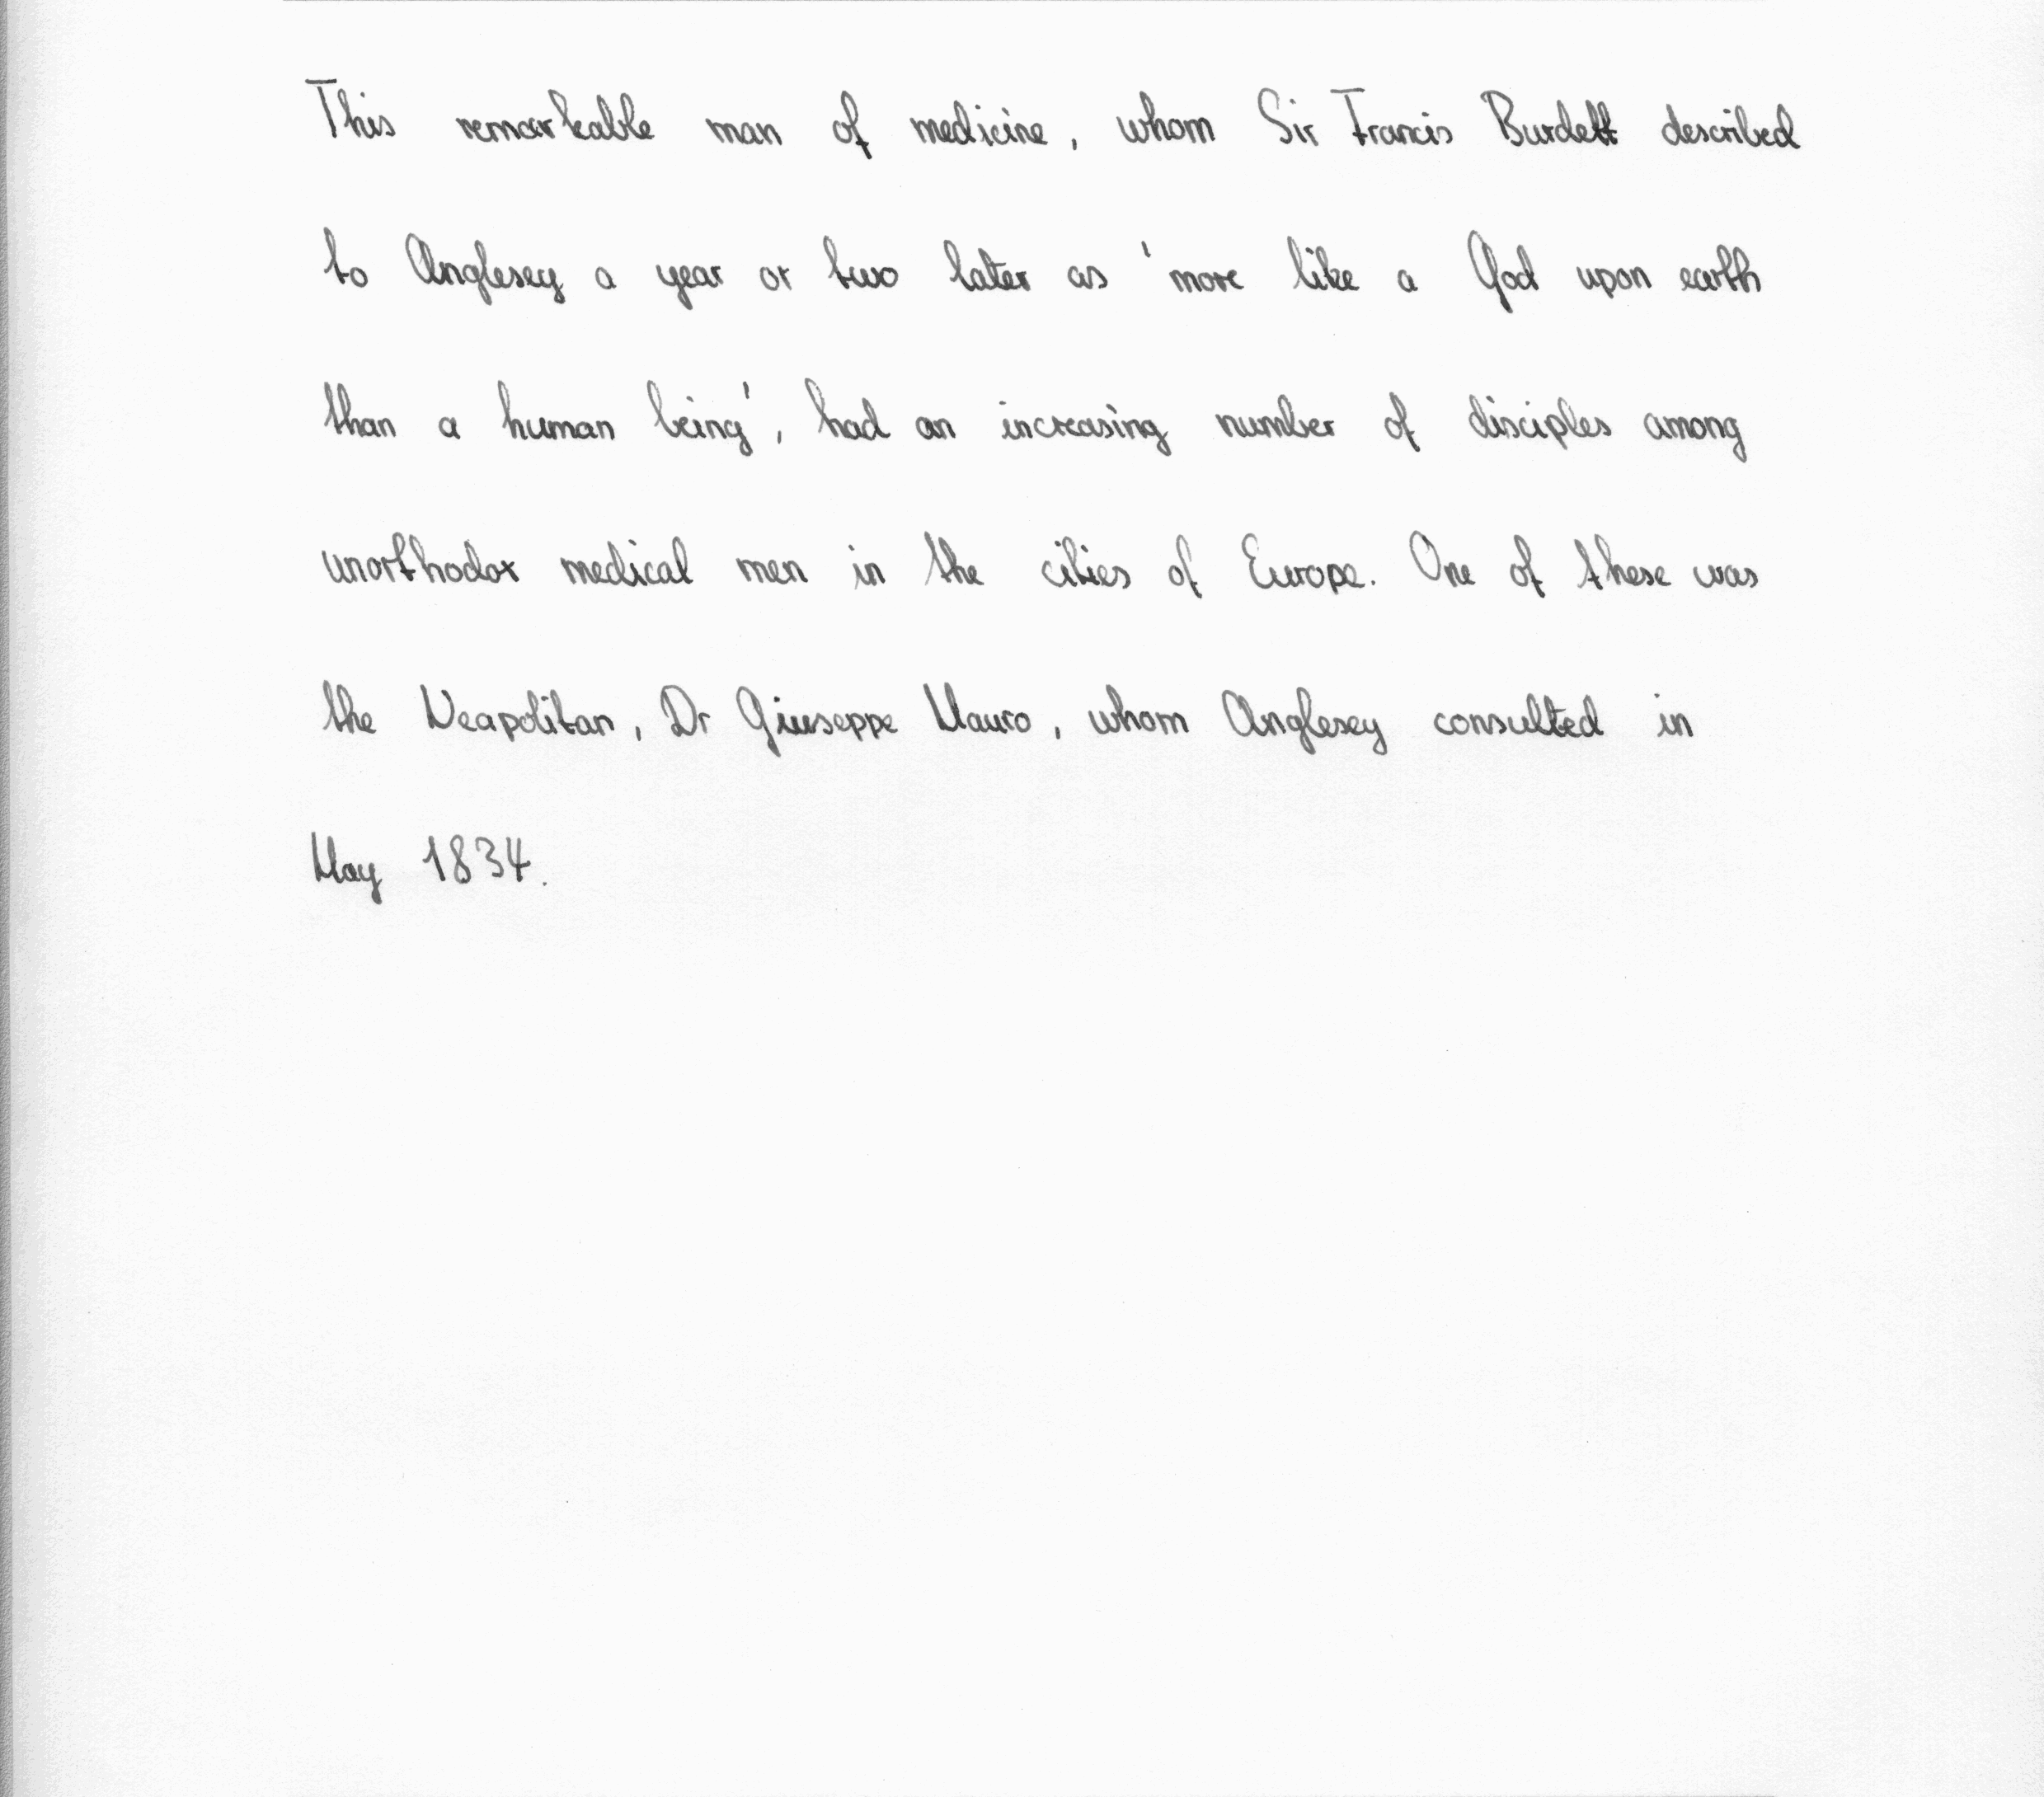 This remarkable man of medicine, whom Sir Francis Burdett described
to Anglesey a year or two later as 'more like a God upon earth
than a human being', had an increasing number of disciples among
unorthodox medical men in the cities of Europe. One of these was
the Neapolitan, Dr Giuseppe Mauro, whom Anglesey consulted in
May 1834.